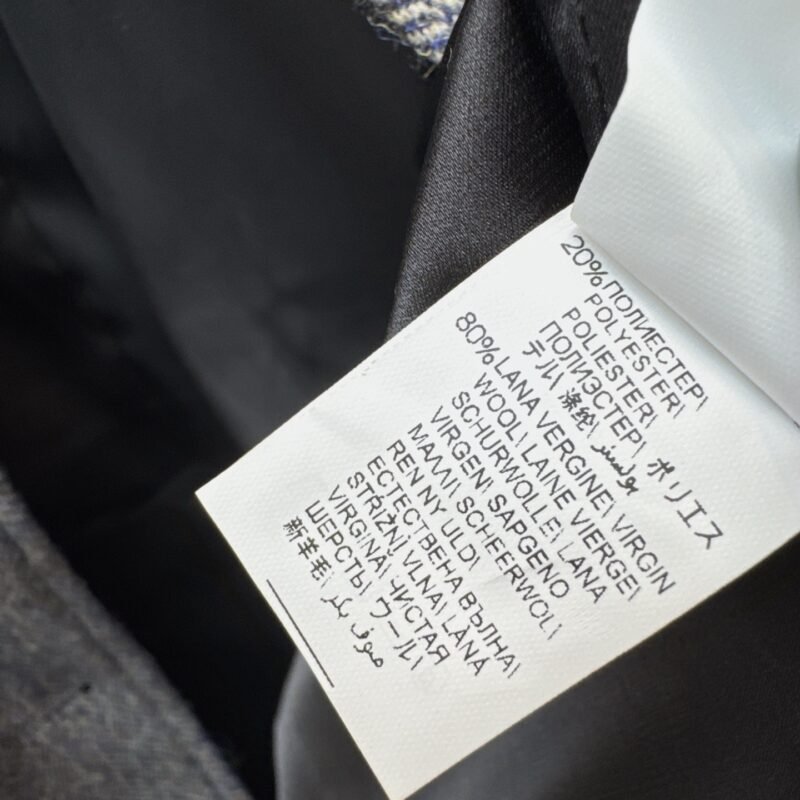 20% ПОЛИЕСТЕР\
POLYESTER\
POLIESTER\
ПОЛИЭСТЕР\ ポリエス
テル\ 涤纶\ بوليستر
80% LANA VERGINE\ VIRGIN
WOOL\ LAINE VIERGE\
SCHURWOLLE\ LANA
VIRGEN\ SAPGENO
MAΛΛI\ SCHEERWOL\
REN NY ULD\
ЕСТЕСТВЕНА ВЪЛНА\
STŘIŽNÍ VLNA\ LÂNĂ
VIRGINĂ\ ЧИСТАЯ
ШЕРСТЬ\ ウール\
新羊毛\ صوف بكر